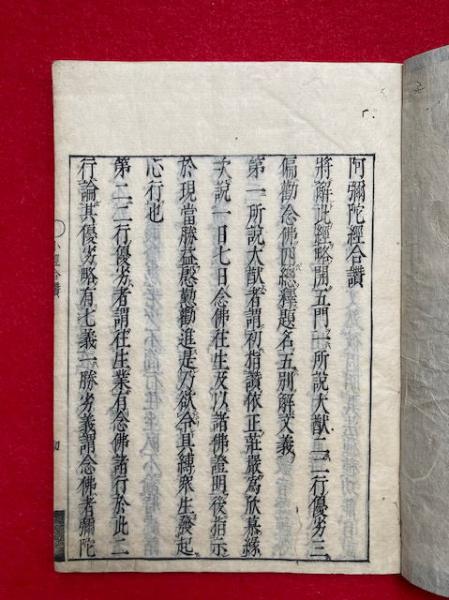 阿彌陀經合讚
將解此經略開五門一所說大猷二二行優劣三
偏勸念佛四總釋題名五別解文義
第一所說大猷者謂初指讚依正莊嚴爲欣慕緣
次說一日七日念佛往生及以諸佛證明後指示
於現當勝益慇懃勸進是乃欲令具縛眾生發起
心行也
第二二行優劣者謂往生業有念佛諸行於此二
行論其優劣略有七義一勝劣義謂念佛者彌陀
小經合讚